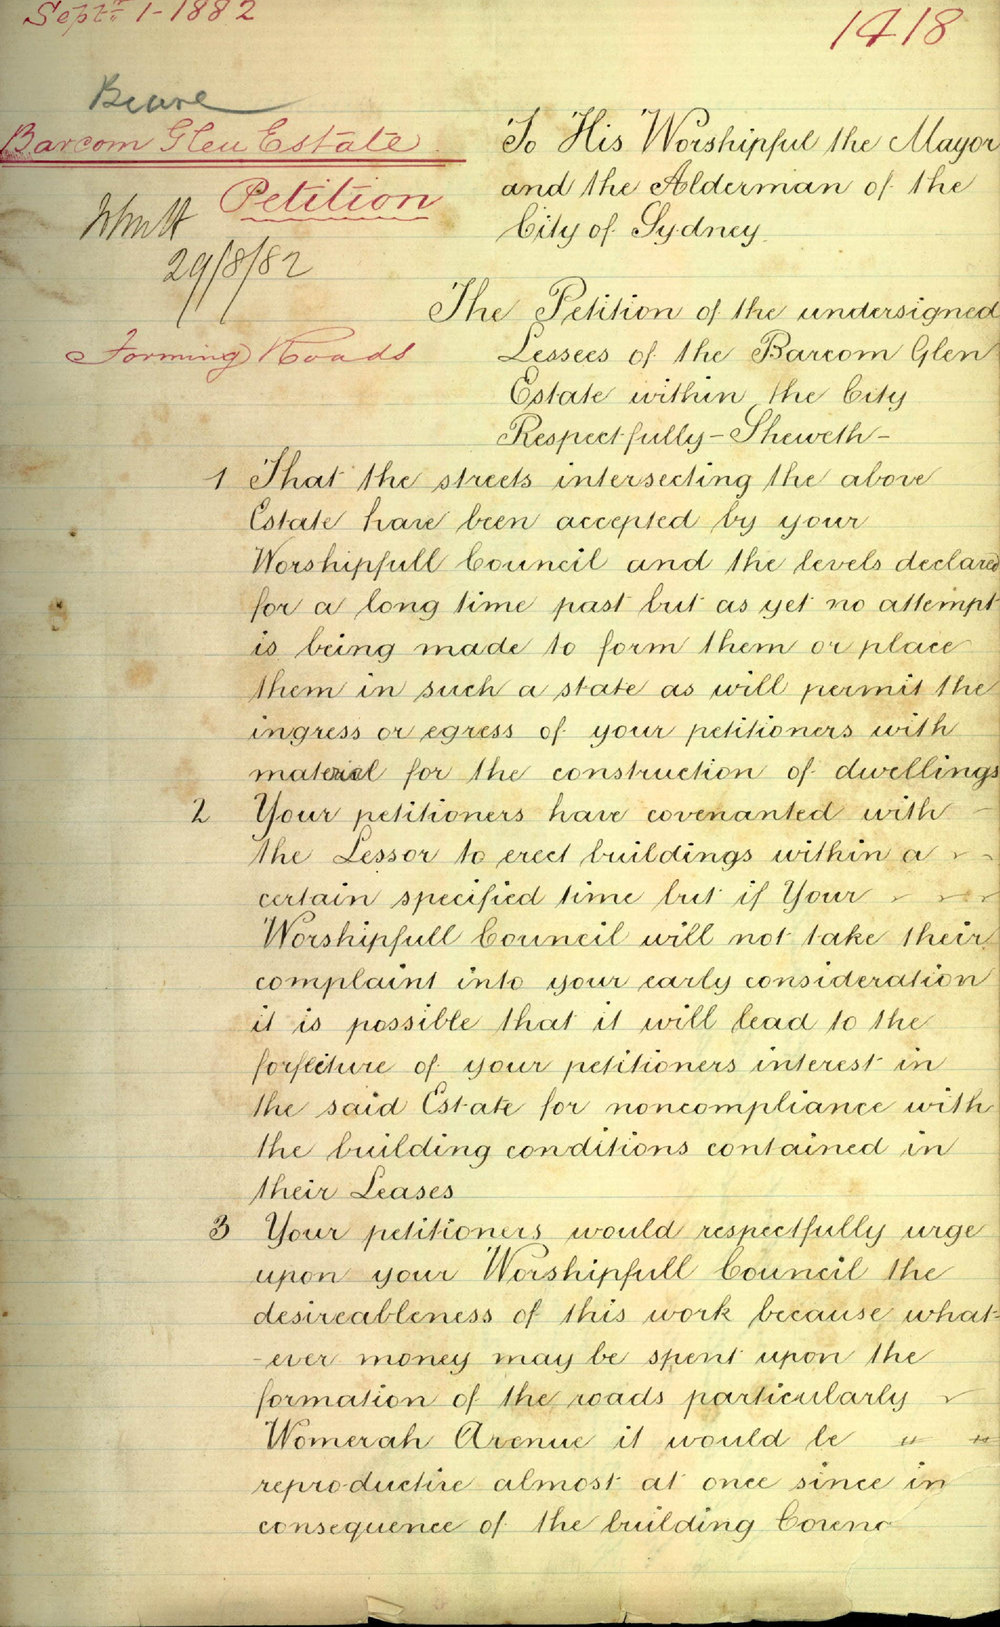 Septr 1-1882
1418
Barcom Glen Estate
Petition
29/8/82
Forming Roads
To His Worshipful the Mayor
and the Alderman of the
City of Sydney.
The Petition of the undersigned
Lessees of the Barcom Glen
Estate within the City
Respectfully - Sheweth -
1 That the streets intersecting the above
Estate have been accepted by your
Worshipfull Council and the levels declared
for a long time past but as yet no attempt
is being made to form them or place
them in such a state as will permit the
ingress or egress of your petitioners with
material for the construction of dwellings
2 Your petitioners have covenanted with
the Lessor to erect buildings within a
certain specified time but if Your
Worshipfull Council will not take their
complaint into your early consideration
it is possible that it will lead to the
forfeiture of your petitioners interest in
the said Estate for noncompliance with
the building conditions contained in
their Leases
3 Your petitioners would respectfully urge
upon your Worshipfull Council the
desireableness of this work because what-
-ever money may be spent upon the
formation of the roads particularly
Womerah Avenue it would be " "
reproductive almost at once since in
consequence of the building Covena